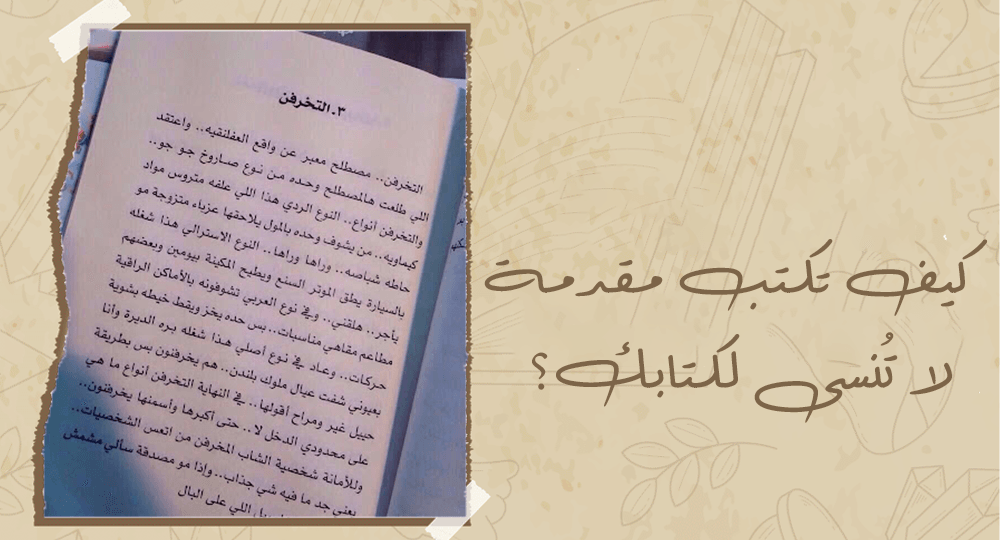 ٣. التخرفن
التخرفن.. مصطلح معبر عن واقع العفلنقيه.. واعتقد
اللي طلعت هالمصطلح وحده من نوع صاروخ جو جو..
والتخرفن أنواع.. النوع الردي هذا اللي علفه متروس مواد
كيماويه.. من يشوف وحده بالمول يلاحقها عزباء متزوجة مو
حاطه شباصه.. وراها وراها.. النوع الاسترالي هذا شغله
بالسيارة يطق الموتر السنع ويطبح المكينة بيومين وبعضهم
يأجر.. هلقني.. وفي نوع العربي تشوفونه بالأماكن الراقية
مطاعم مقاهي مناسبات.. بس حده يخز ويقط خيطه بشوية
حركات.. وعاد في نوع أصلي هذا شغله بره الديرة وأنا
بعيوني شفت عيال ملوك بلندن.. هم يخرفنون بس بطريقة
حييل غير ومراح أقولها.. في النهاية التخرفن أنواع ما هي
على محدودي الدخل لا.. حتى أكبرها وأسمنها يخرفنون..
وللأمانة شخصية الشاب المخرفن من اتعس الشخصيات..
يعني جد ما فيه شي جذاب.. وإذا مو مصدقة سألي مشمش
اللي على البال
كيف تكتب مقدمة
لا تُنسى لكتابك؟